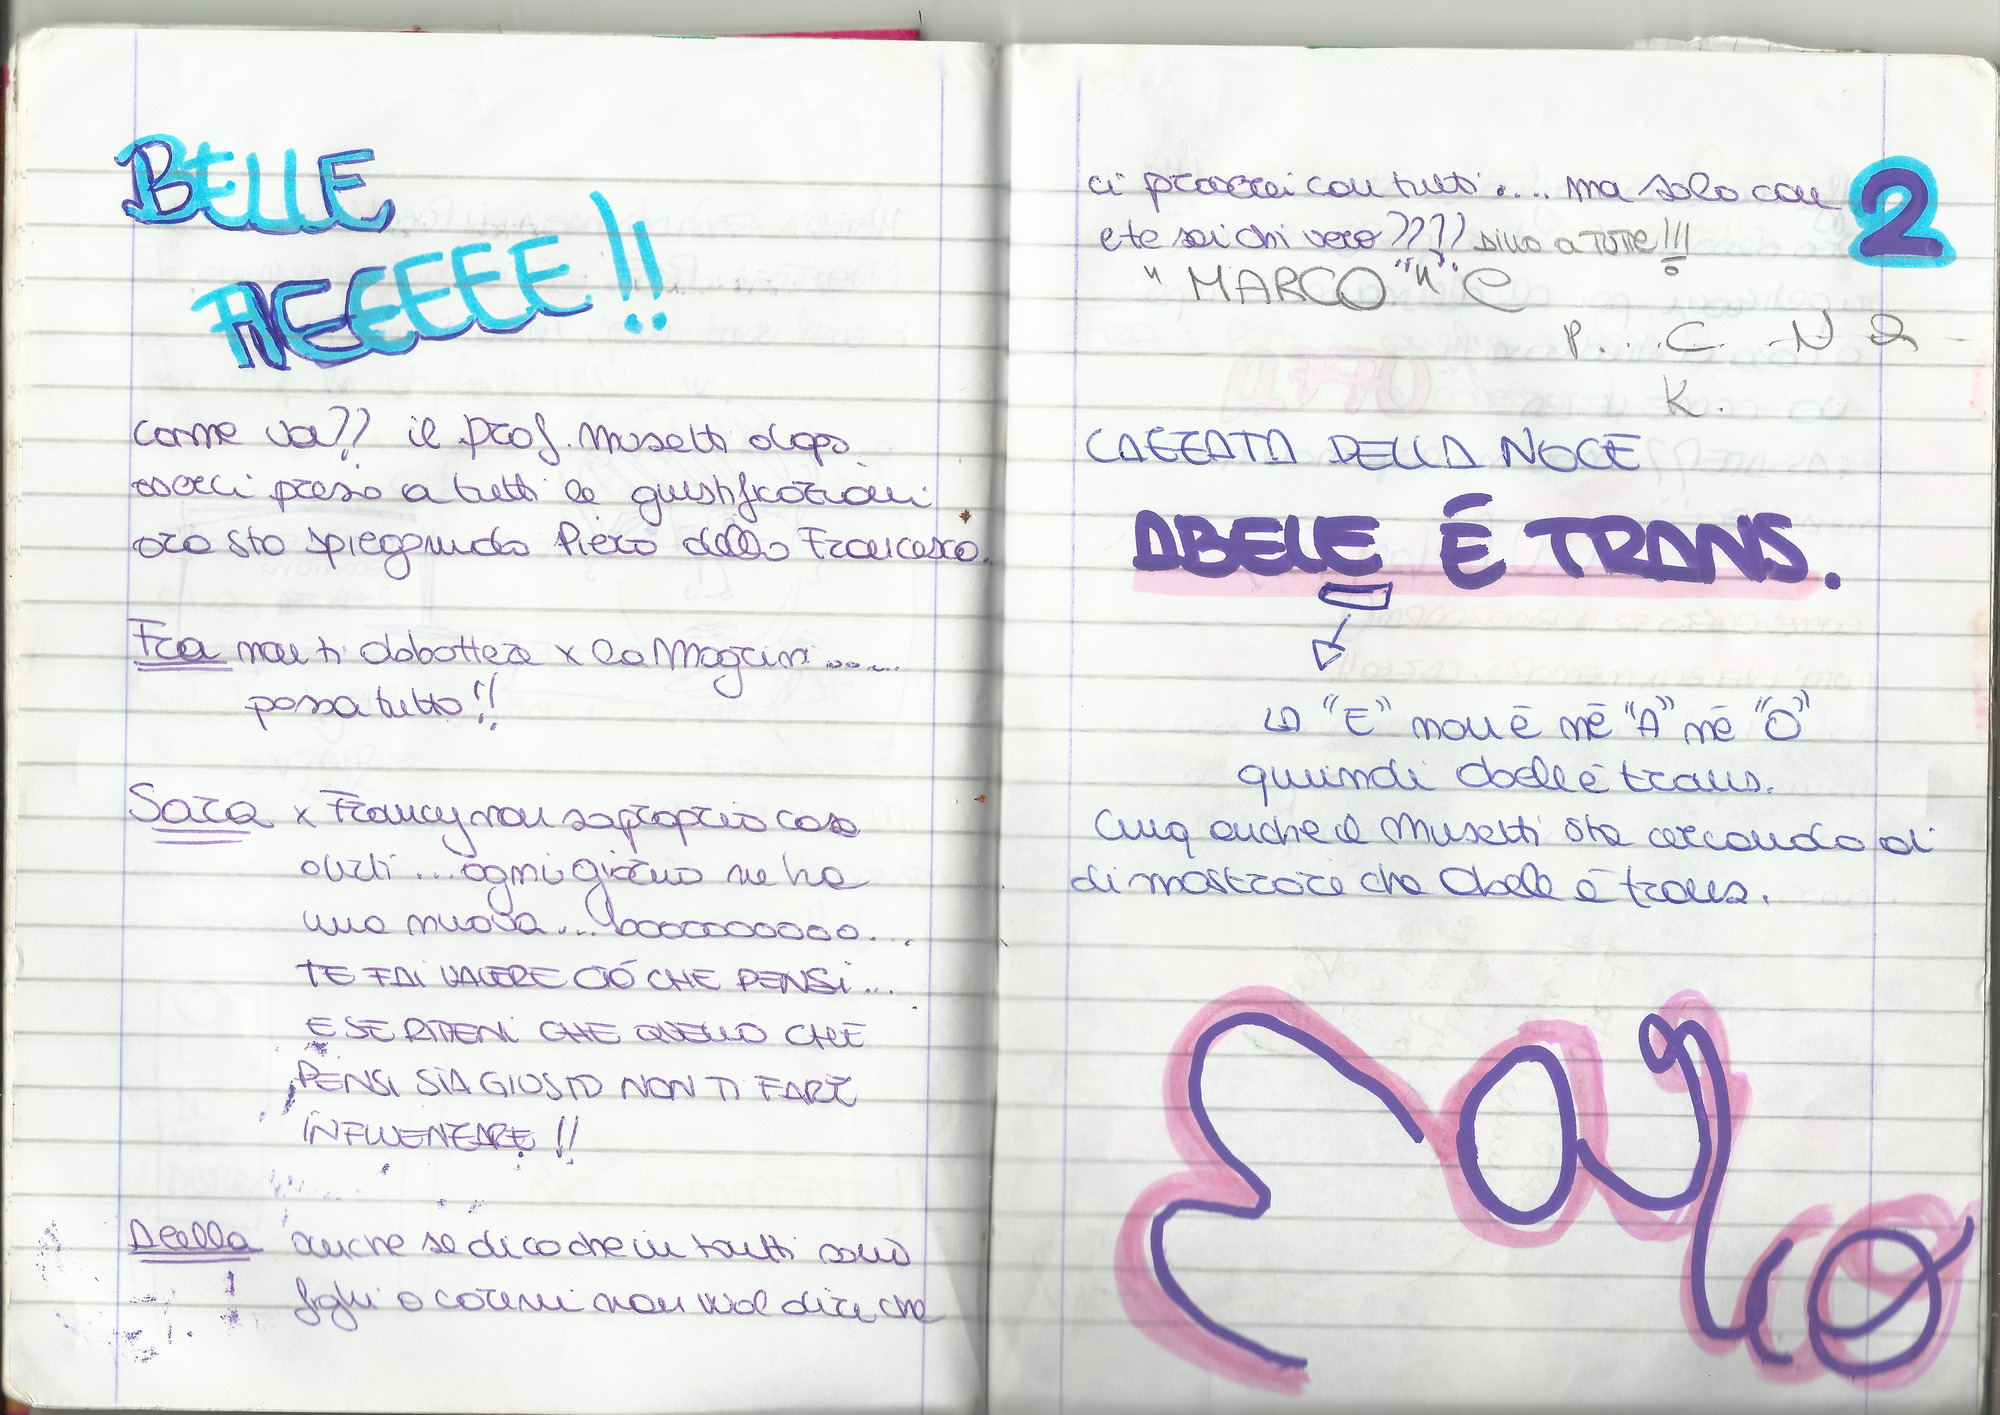 BELLE
AEEEEEE!!
come va?? il prof. Musetti dopo
averci preso a tutti le giustificazioni
ora sta spiegando Piero della Francesca.
Fra non ti abbattere x la Magrini......
passa tutto!!
Sara x Francy non sa proprio cosa
outi...ogni giorno ne ha
una nuova...booooooooo...
TE FAI VALERE CIÓ CHE PENSI...
E SE RITIENI CHE QUELLO CHE
PENSI SIA GIUSTO NON TI FARE
INFLUENZARE!!
anche se dico che in tanti sono
fighi o carini non vuol dire che
2
ci proverei con tutti.... ma solo con
e te sai chi vero???? DILLO A TUTTE!!!
"MARCO" C
P...C. N 2
K.
CAZZATA DELLA NOCE
ABELE É TRANS.
LA "E" non é né "A" né "O"
quindi abele é trans.
Cmq anche il Musetti sta cercando di
dimostrare che abele é trans.